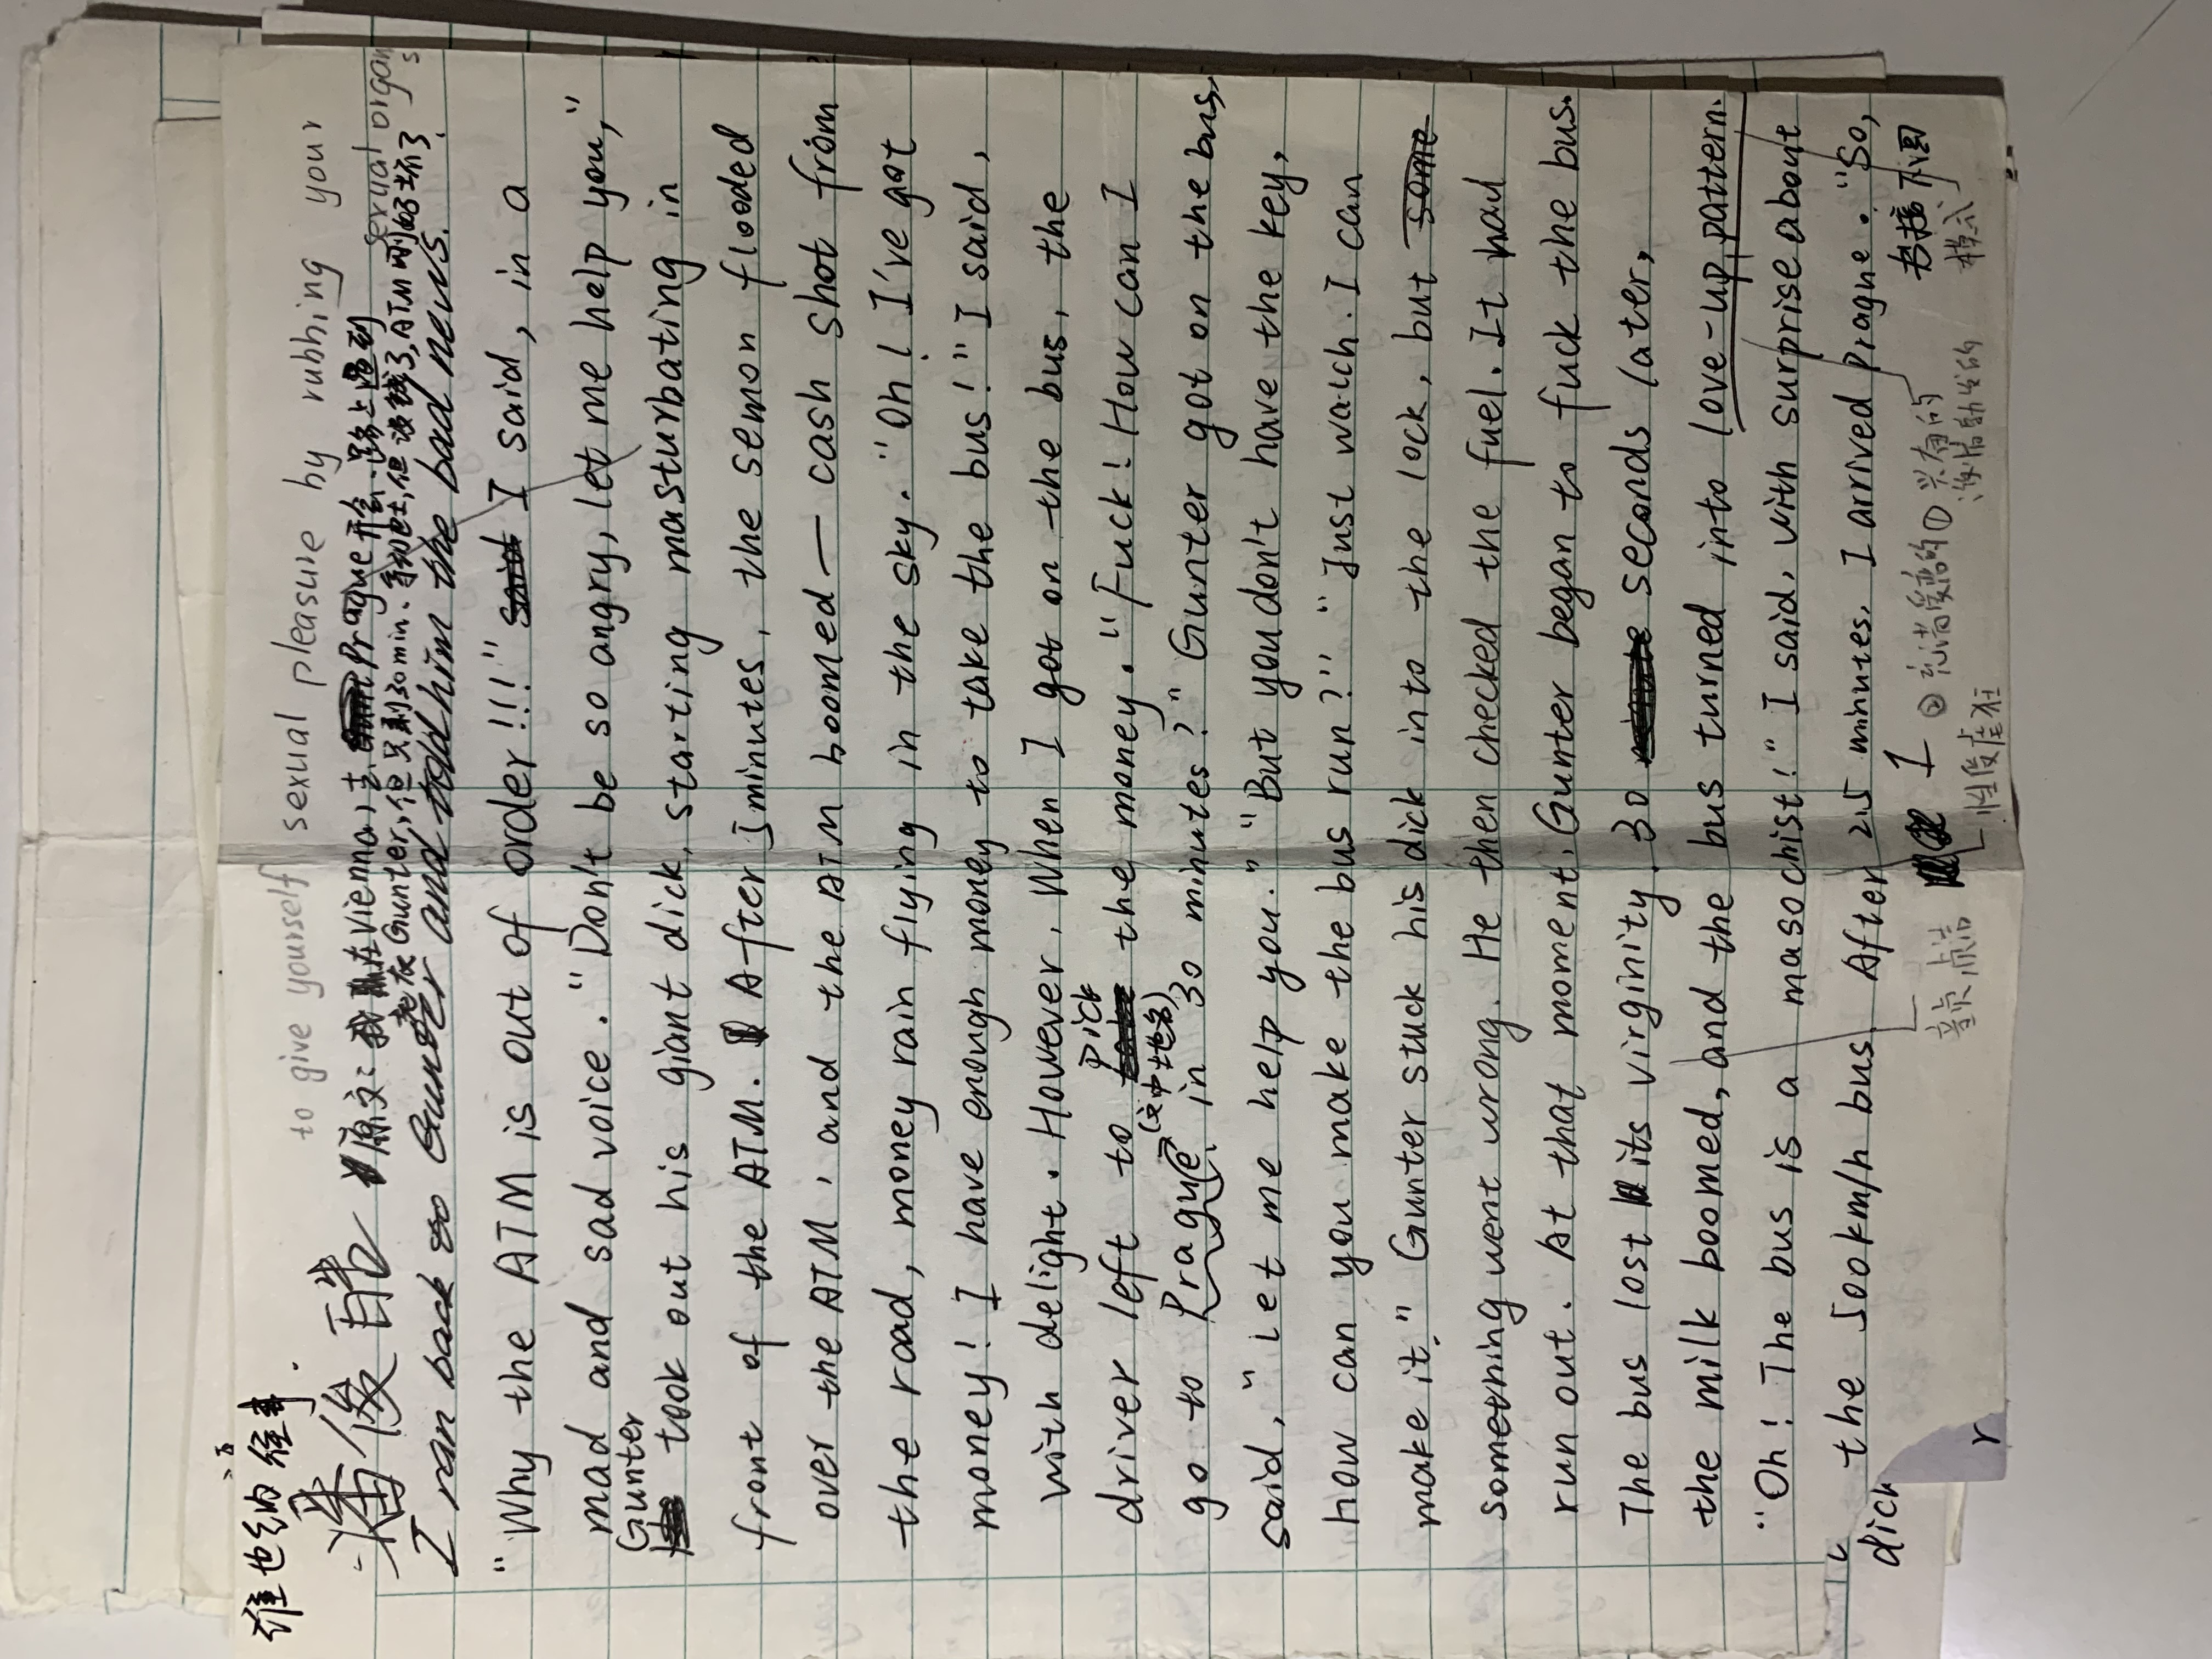 维也纳往事.
潘俊酷
to give yourself sexual pleasure by rubbing your
sexual organs
原文: 我在Vienna, 去Prague开会. 路上遇到
老友Gunter, 但只剩30min. 等到巴士, 但没钱了, ATM刚好坏了
I ran back to Gunter and told him the bad news.
"Why the ATM is out of order!!!" said I said, in a
mad and sad voice. "Don't be so angry, let me help you,"
Gunter
took out his giant dick, starting masturbating in
front of the ATM. After 5 minutes, the semon flooded
over the ATM, and the ATM boomed — cash shot from
the road, money rain flying in the sky. "Oh! I've got
money! I have enough money to take the bus!" I said,
with delight. However, When I got on the bus, the
pick
driver left to take the money. "Fuck! How can I
(文中地名)
go to Prague in 30 minutes?" Gunter got on the bus,
said, "Let me help you." "But you don't have the key,
how can you make the bus run?" "Just watch. I can
make it." Gunter stuck his dick into the lock, but some
something went wrong. He then checked the fuel. It had
run out. At that moment, Gunter began to fuck the bus.
The bus lost its virginity. 30 minute seconds later,
the milk boomed, and the bus turned into love-up pattern.
"Oh! The bus is a masochist!" I said, with surprise about
the 500km/h bus. After 2.5 minutes, I arrived Prague. "So,
dick
童贞, 贞洁
1
②充满爱恋的 ①兴奋的
模式
性受虐狂
r